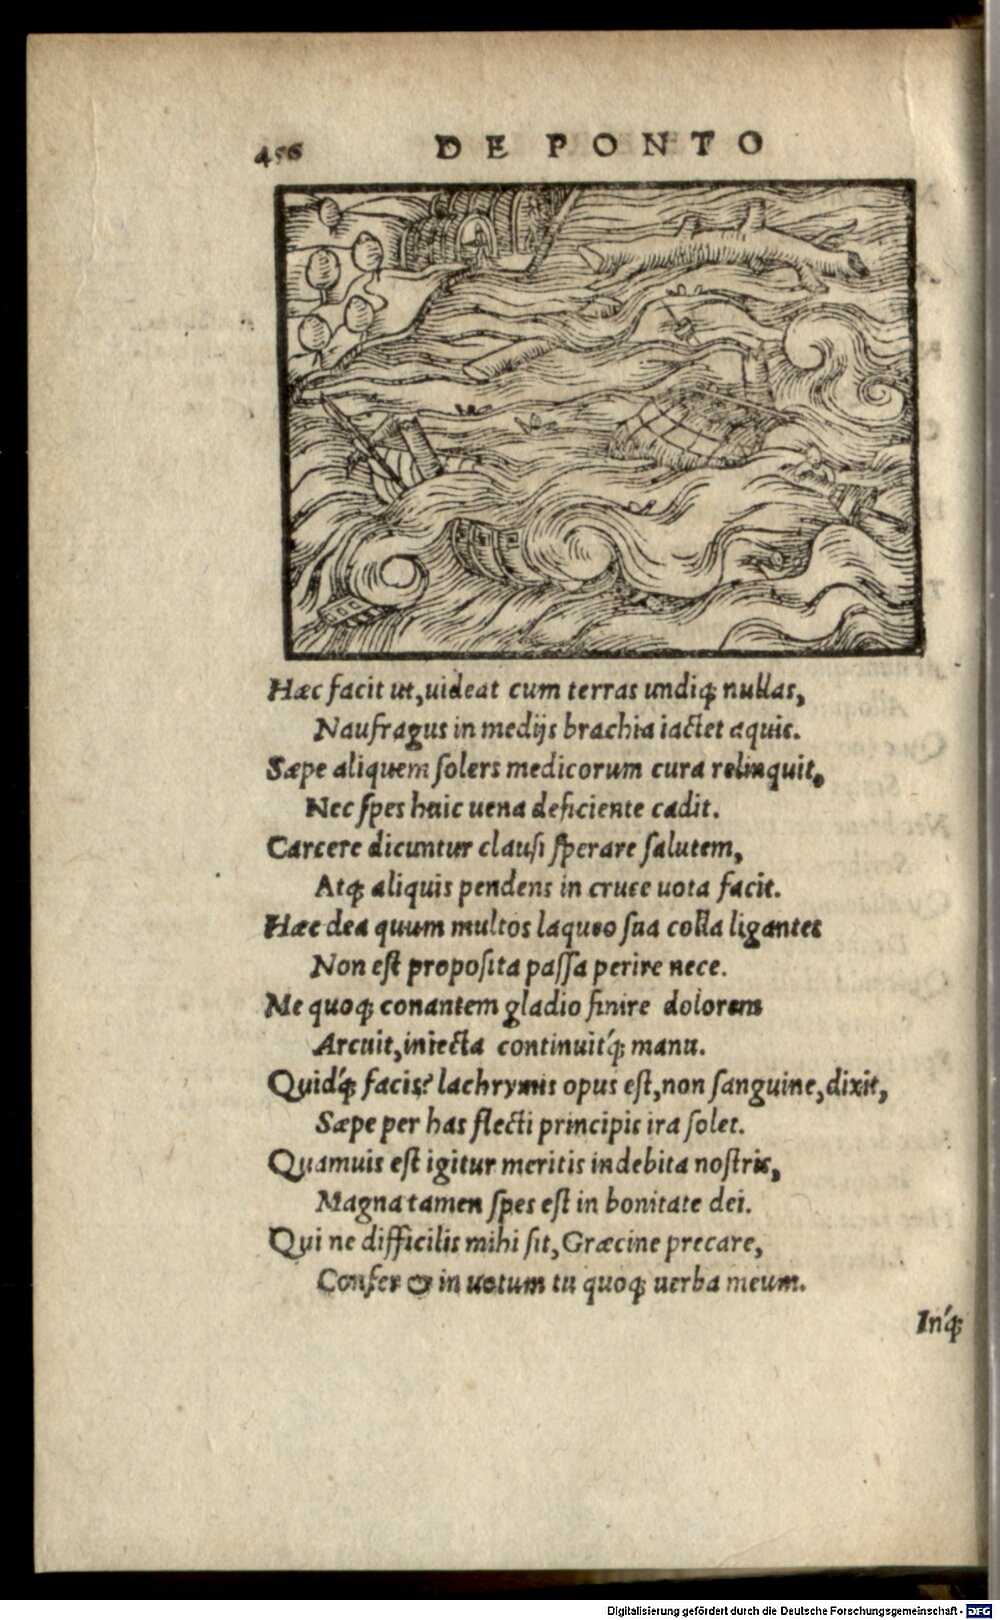 456 DE PONTO
Hæc facit ut, uideat cum terras undiq; nullas,
Naufragus in medijs brachia iactet aquis.
Sæpe aliquem solers medicorum cura relinquit,
Nec spes huic uena deficiente cadit.
Carcere dicuntur clausi sperare salutem,
Atq; aliquis pendens in cruce uota facit.
Hæc dea quum multos laqueo sua colla ligantes
Non est proposita passa perire nece.
Me quoq; conantem gladio finire dolorem
Arcuit, iniecta continuit'q; manu.
Quid'q; facis? lachrymis opus est, non sanguine, dixit,
Sæpe per has flecti principis ira solet.
Quamuis est igitur meritis indebita nostris,
Magna tamen spes est in bonitate dei.
Qui ne difficilis mihi sit, Græcine precare,
Confer & in uotum tu quoq; uerba meum.
In'q;
Digitalisierung gefördert durch die Deutsche Forschungsgemeinschaft - DFG